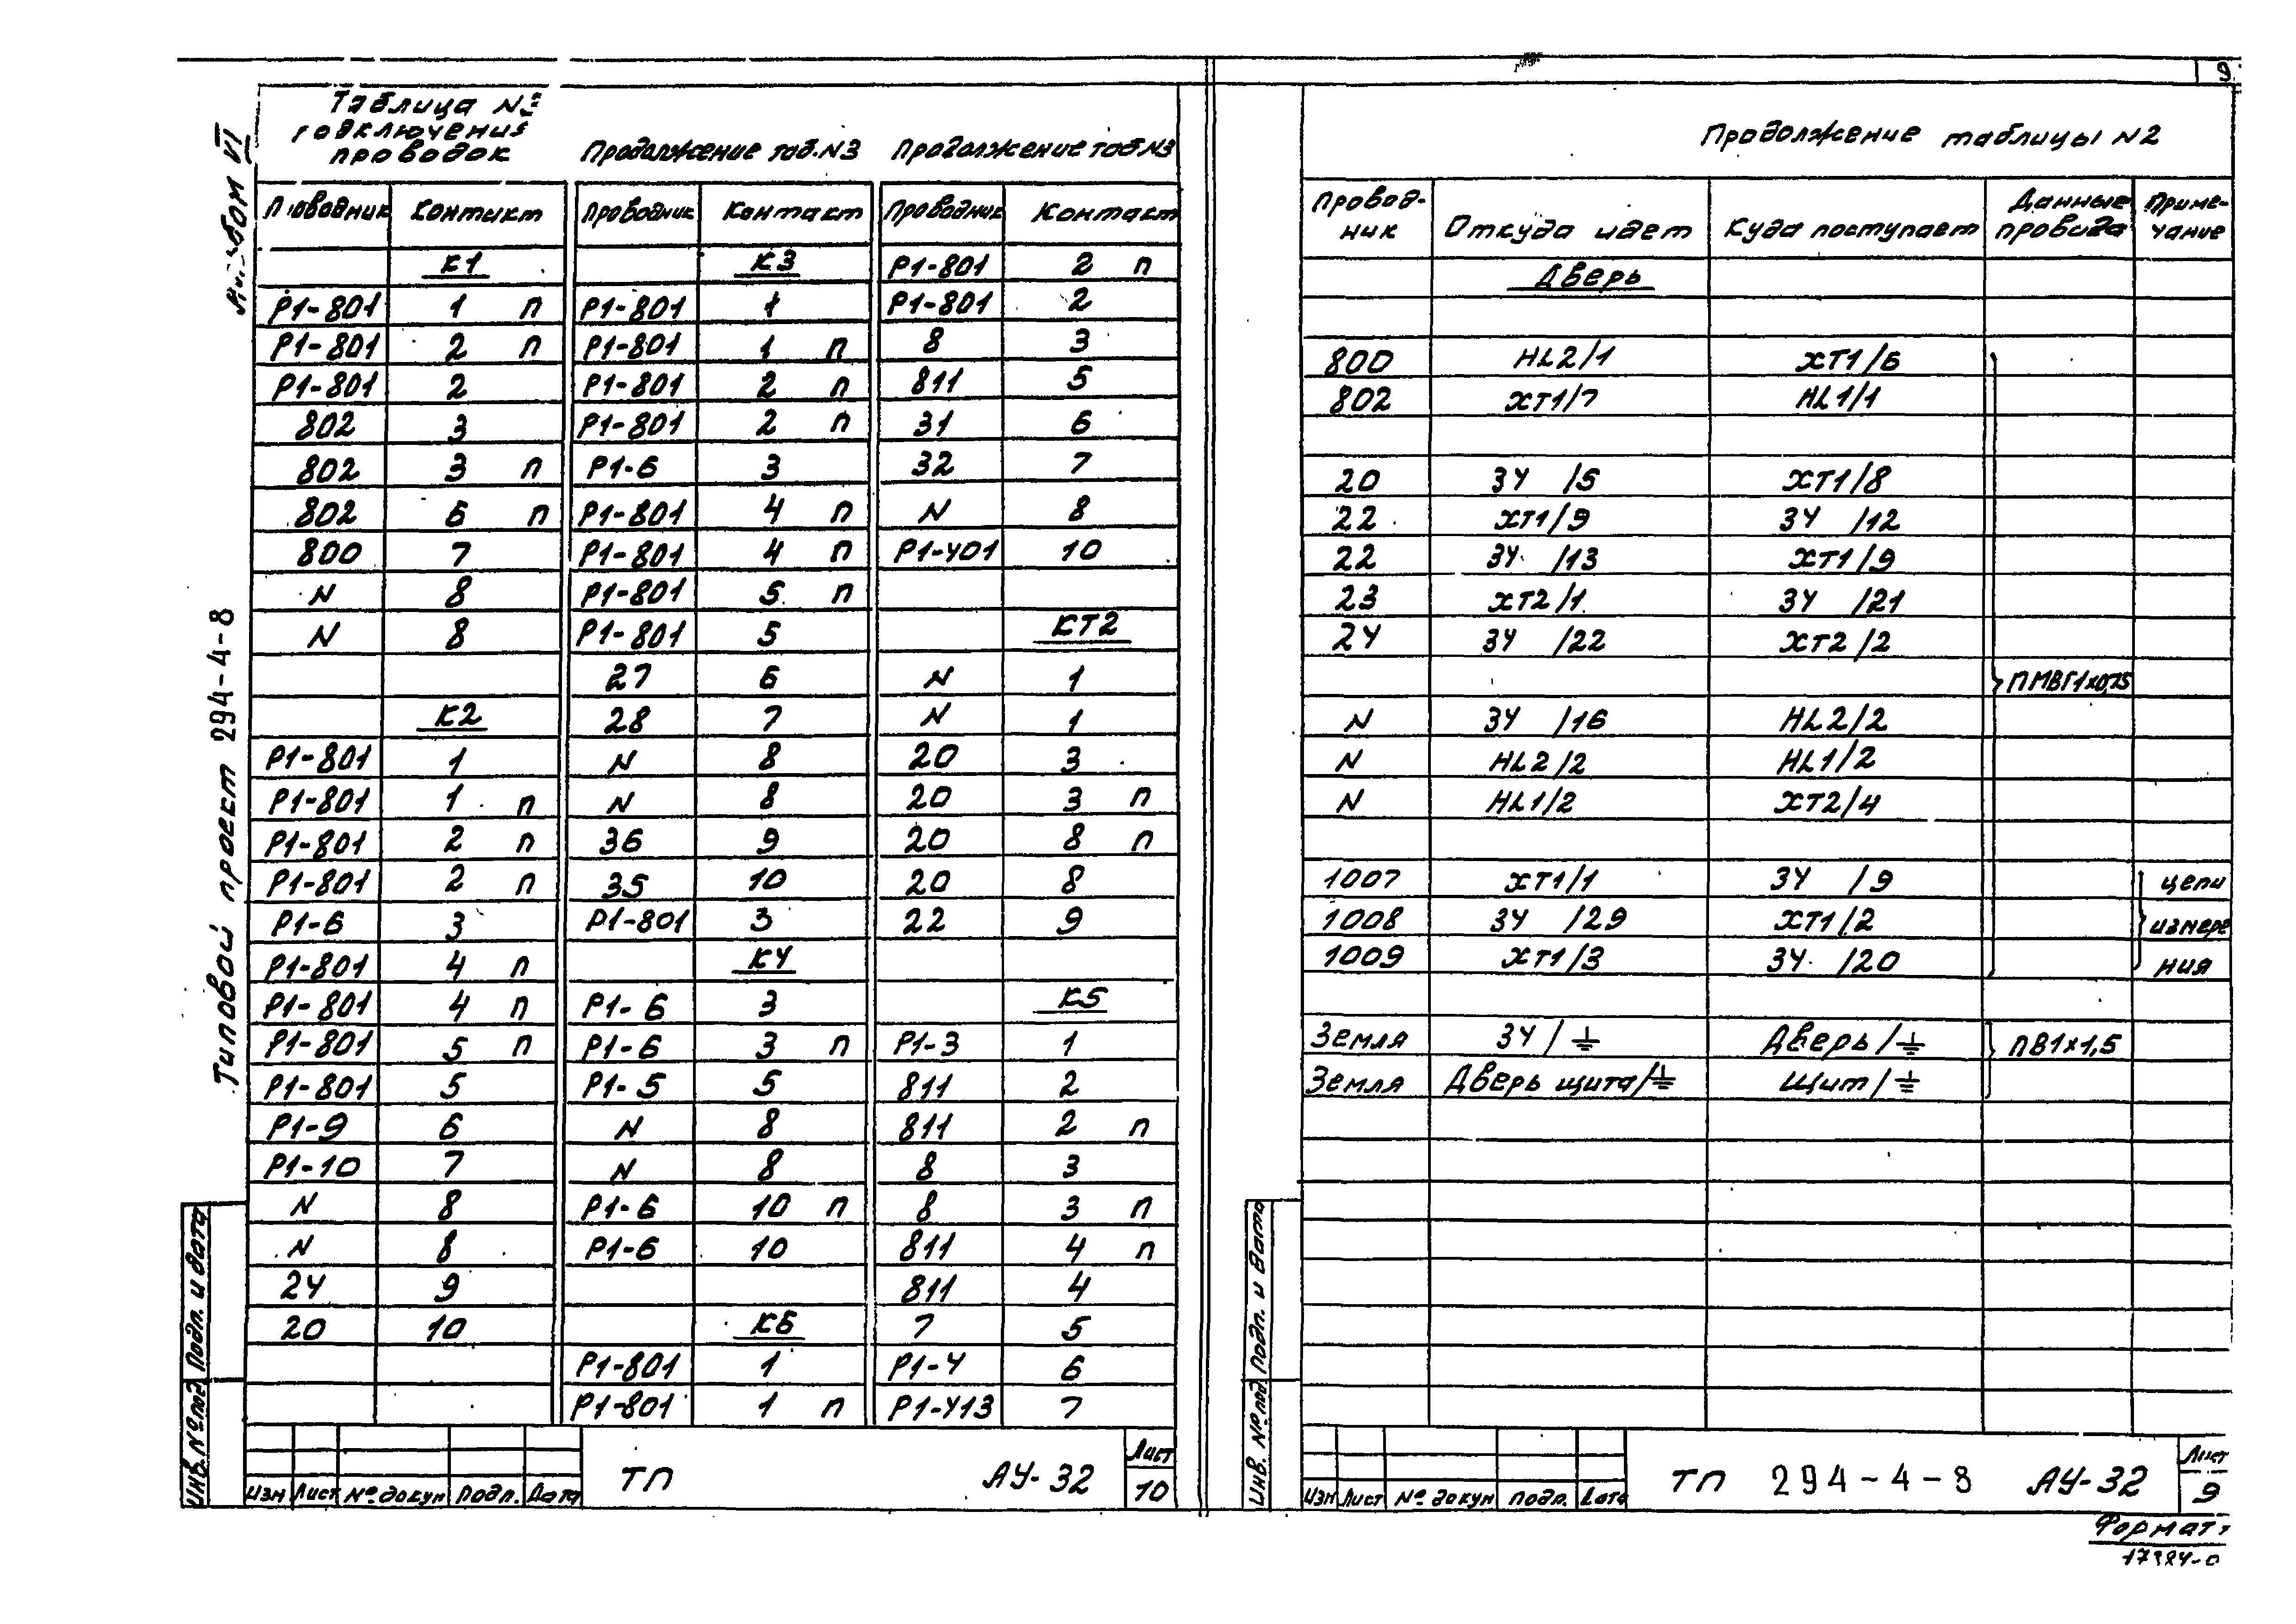 Типовой проект 294-4-8
Таблица N3
подключения
проводок
Проводник Контакт
К1
Р1-801 1 п
Р1-801 2 п
Р1-801 2
802 3
802 3 п
802 6 п
800 7
N 8
N 8
К2
Р1-801 1
Р1-801 1 п
Р1-801 2 п
Р1-801 2 п
Р1-6 3
Р1-801 4 п
Р1-801 4 п
Р1-801 5 п
Р1-801 5
Р1-9 6
Р1-10 7
N 8
N 8
24 9
20 10
Продолжение таб.N3
Проводник Контакт
К3
Р1-801 1
Р1-801 1 п
Р1-801 2 п
Р1-801 2 п
Р1-6 3
Р1-801 4 п
Р1-801 4 п
Р1-801 5 п
Р1-801 5
27 6
28 7
N 8
N 8
36 9
35 10
Р1-801 3
К4
Р1-6 3
Р1-6 3 п
Р1-5 5
N 8
N 8
Р1-6 10 п
Р1-6 10
К6
Р1-801 1
Р1-801 1 п
Продолжение таб N3
Проводник Контакт
Р1-801 2 п
Р1-801 2
8 3
811 5
31 6
32 7
N 8
Р1-401 10
КТ2
N 1
N 1
20 3
20 3 п
20 8 п
20 8
22 9
К5
Р1-3 1
811 2
811 2 п
8 3
8 3 п
811 4 п
811 4
7 5
Р1-4 6
Р1-413 7
Инв.№под Подп. и дата
Изм Лист № докум Подп. Дата
ТП АУ-32
Лист
10
9
Продолжение таблицы N2
Провод-
ник Откуда идет Куда поступает Данные
провода Приме-
чание
Дверь
800 HL2/1 ХТ1/6
802 ХТ1/7 HL1/1
20 ЗУ /5 ХТ1/8
22 ХТ1/9 ЗУ /12
22 ЗУ /13 ХТ1/9
23 ХТ2/1 ЗУ /21
24 ЗУ /22 ХТ2/2
ПМВГ1х0,75
N ЗУ /16 HL2/2
N HL2/2 HL1/2
N HL1/2 ХТ2/4
1007 ХТ1/1 ЗУ /9 цепи
1008 ЗУ /29 ХТ1/2 измере
1009 ХТ1/3 ЗУ /20 ния
Земля ЗУ/⏚ Дверь/⏚ ПВ1х1,5
Земля Дверь щита/⏚ Щит/⏚
Инв. №под Подп. и дата
Изм Лист № докум подп. Дата
ТП 294-4-8 АУ-32
Лист
9
Формат